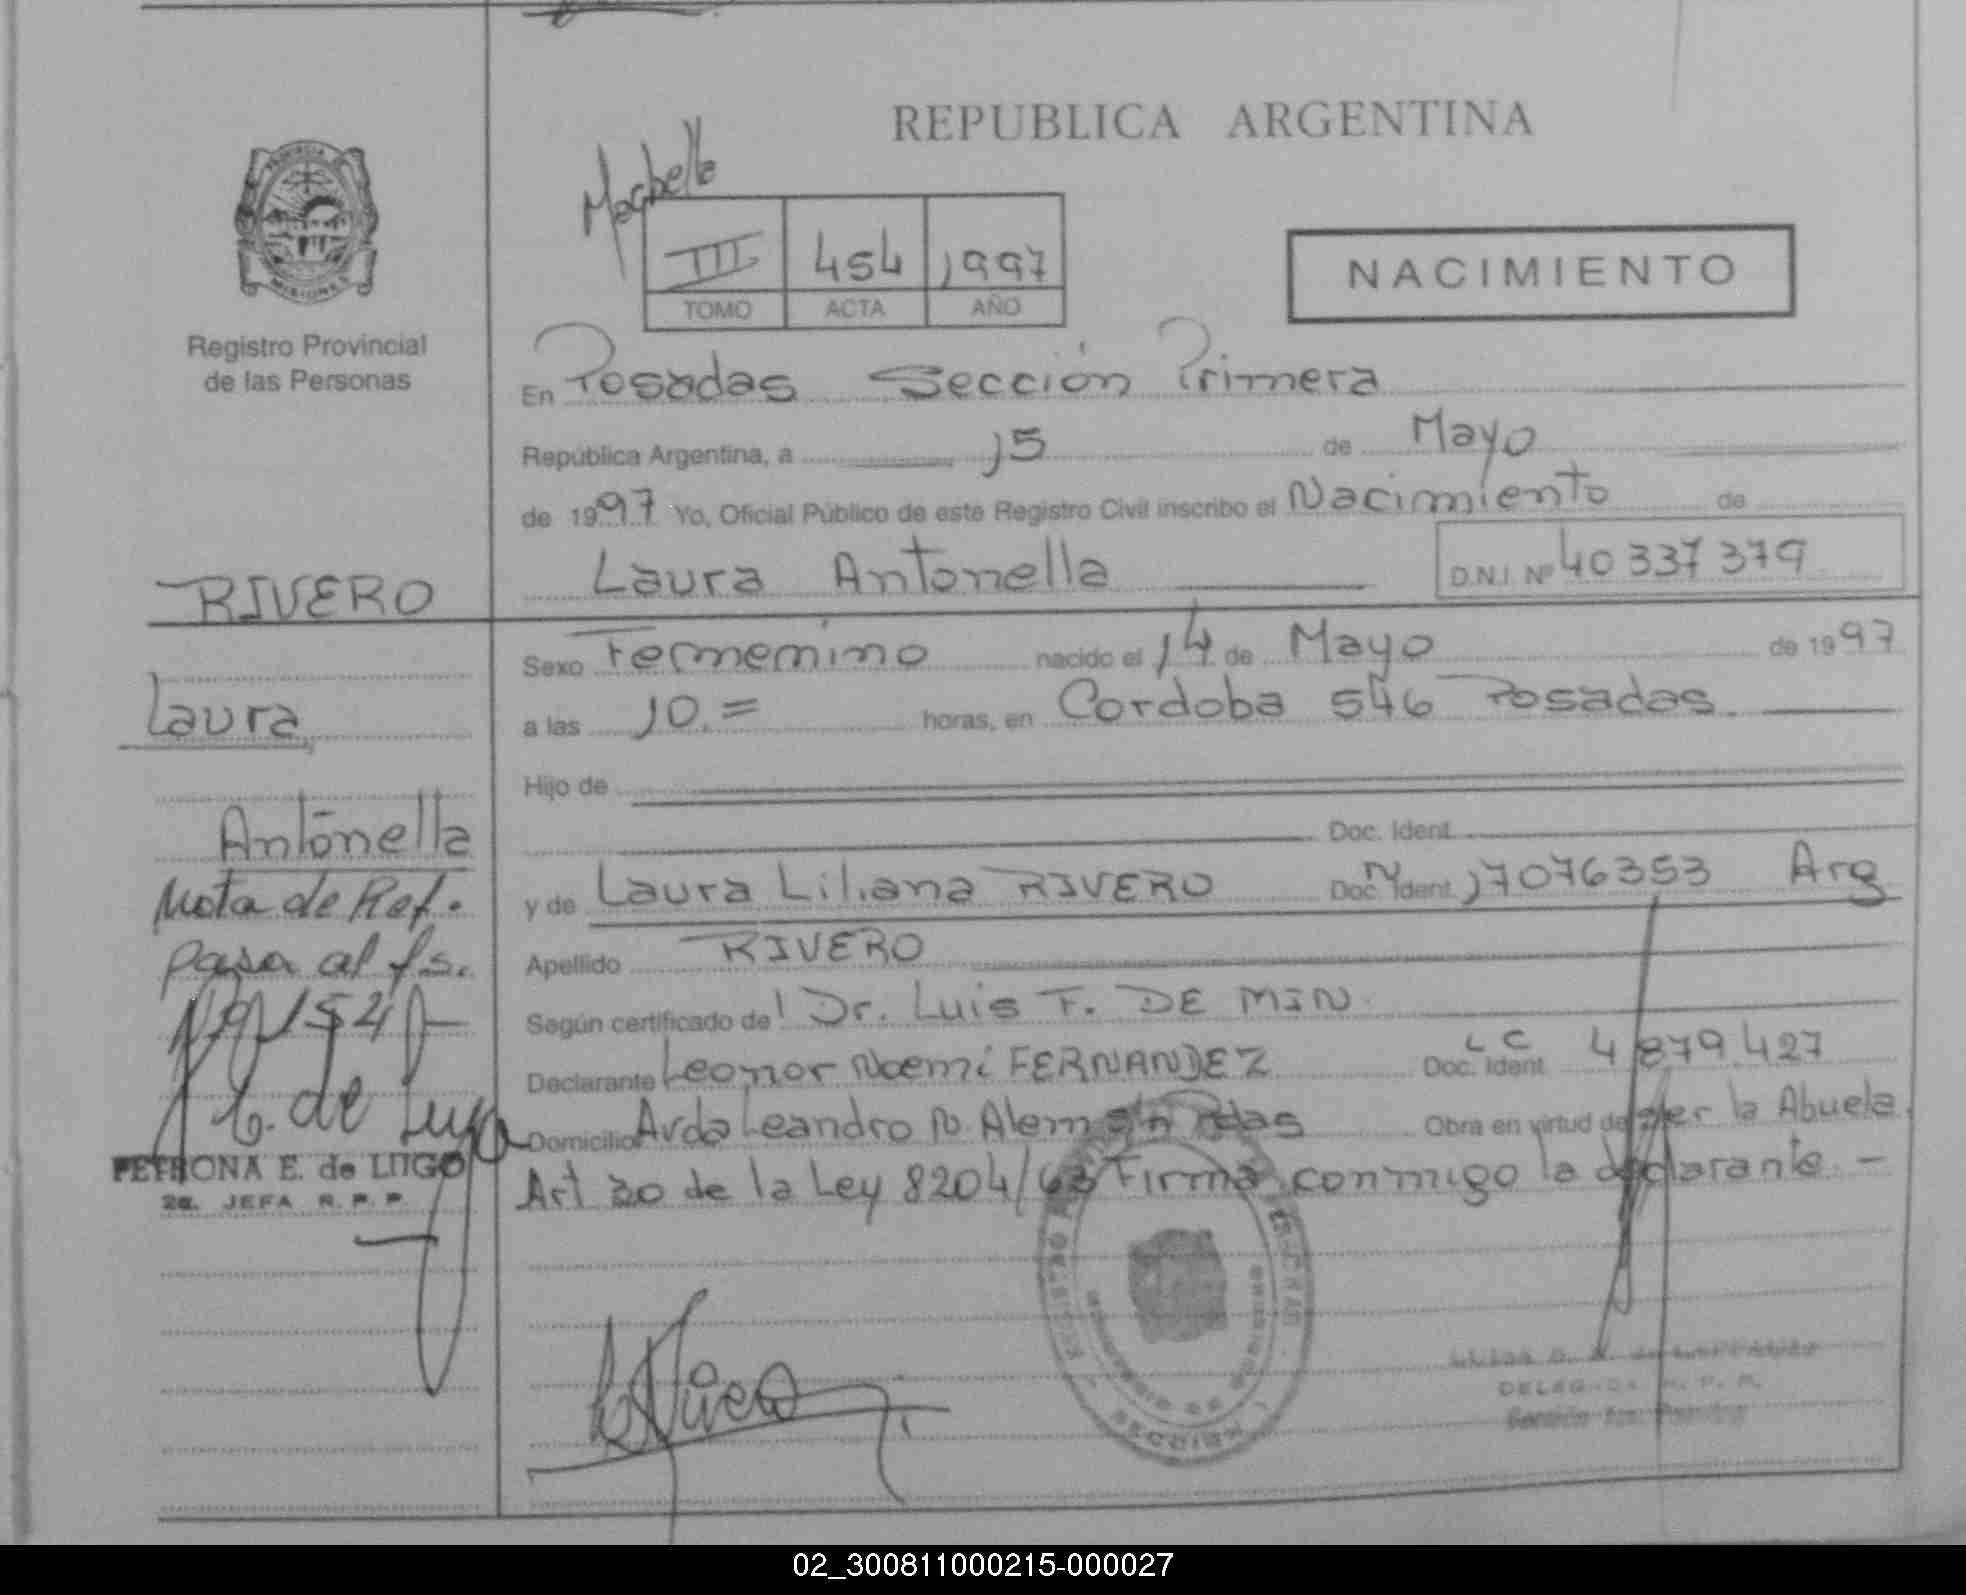 REPUBLICA ARGENTINA
PROVINCIA
MISIONES
Registro Provincial
de las Personas
III 454 1997
TOMO ACTA AÑO
NACIMIENTO
En Posadas Sección Primera
República Argentina, a 15 de Mayo
de 1997 Yo, Oficial Público de este Registro Civil inscribo el Nacimiento de
Laura Antonella D.N.I. Nº 40 337 379
RIVERO
Laura,
Antonella
Nota de Ref.
pasa al fs.
E. de Lugo
PETRONA E. de LUGO
2a. JEFA R. P. P.
Sexo Femenino nacido el 14 de Mayo de 1997
a las 10.= horas, en Cordoba 546 Posadas.
Hijo de
Doc. Ident.
y de Laura Liliana RIVERO Doc. Ident. 17076353 Arg
Apellido RIVERO
Según certificado del Dr. Luis F. DE MIN.
Declarante Leonor Noemi FERNANDEZ Doc. Ident. LC 4 879.427
Domicilio Avda Leandro N. Alem s/n Pdas Obra en virtud de ser la Abuela.
Art 30 de la Ley 8204/63 Firma conmigo la declarante. -
SECCION
DELEGADA R. P. P.
02_300811000215-000027